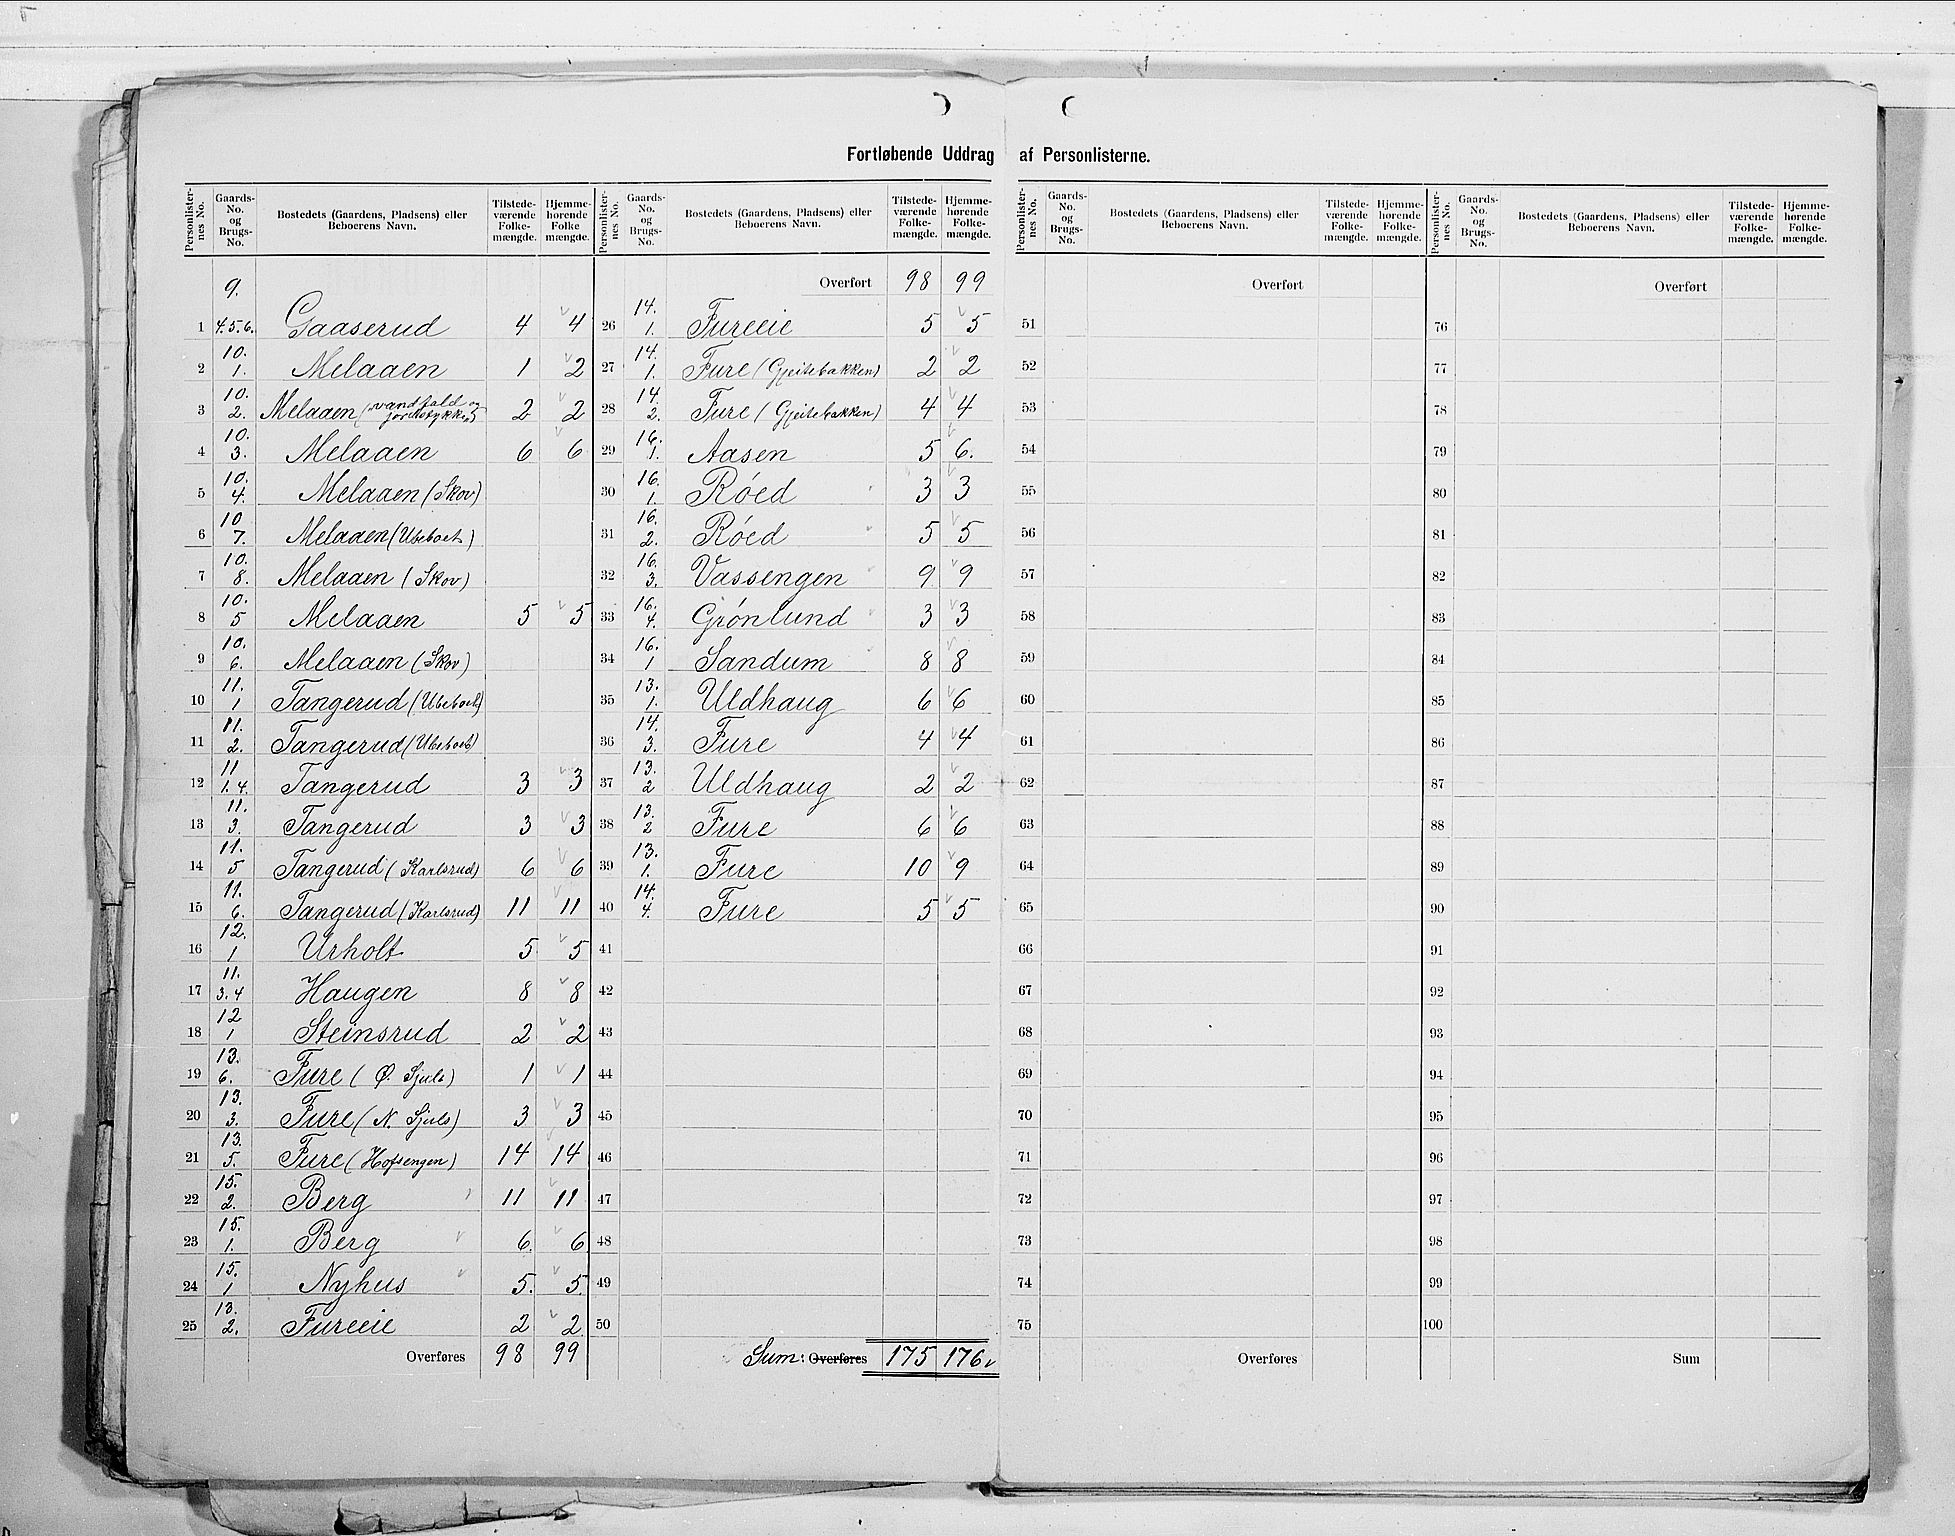 Fortløbende Uddrag af Personlisterne.
Personlisternes No. | Gaards-No. og Brugs-No. | Bostedets (Gaardens, Pladsens) eller Beboerens Navn. | Tilstedeværende Folkemængde. | Hjemmehørende Folkemængde.
1 | 9. 4.5.6. | Gaaserud | 4 | 4
2 | 10. 1. | Melaaen | 1 | 2
3 | 10. 2. | Melaaen (vandfald og jordstykke) | 2 | 2
4 | 10. 3. | Melaaen | 6 | 6
5 | 10. 4. | Melaaen (Skov)
6 | 10 7. | Melaaen (Ubeboet)
7 | 10. 8. | Melaaen (Skov)
8 | 10. 5 | Melaaen | 5 | 5
9 | 10. 6. | Melaaen (Skov)
10 | 11. 1 | Tangerud (Ubeboet)
11 | 11. 2. | Tangerud (Ubeboet)
12 | 11 1.4. | Tangerud | 3 | 3
13 | 11. 3. | Tangerud | 3 | 3
14 | 11. 5 | Tangerud (Karlsrud) | 6 | 6
15 | 11. 6. | Tangerud (Karlsrud) | 11 | 11
16 | 12. 1 | Urholt | 5 | 5
17 | 11. 3.4 | Haugen | 8 | 8
18 | 12 1 | Steinsrud | 2 | 2
19 | 13. 6. | Fure (Ø. Sjuls) | 1 | 1
20 | 13. 3. | Fure (N. Sjuls) | 3 | 3
21 | 13. 5. | Fure (Hofsengen) | 14 | 14
22 | 15. 2. | Berg | 11 | 11
23 | 15. 1. | Berg | 6. | 6
24 | 15. 1 | Nyhus | 5. | 5.
25 | 13. 2. | Fureeie | 2 | 2
Overføres | 98 | 99
Personlisternes No. | Gaards-No. og Brugs-No. | Bostedets (Gaardens, Pladsens) eller Beboerens Navn. | Tilstedeværende Folkemængde. | Hjemmehørende Folkemængde.
Overført | 98 | 99
26 | 14. 1. | Fureeie | 5 | 5
27 | 14. 1. | Fure (Gjeitebakken) | 2 | 2
28 | 14. 2. | Fure (Gjeitebakken) | 4 | 4
29 | 16. 1. | Aasen | 5 | 6.
30 | 16. 1. | Røed | 3 | 3
31 | 16. 2. | Røed | 5 | 5
32 | 16. 3. | Vassengen | 9 | 9
33 | 16. 4. | Grønlund | 3 | 3
34 | 16. 1 | Sandum | 8 | 8
35 | 13. 1. | Uldhaug | 6 | 6
36 | 14. 3. | Fure | 4 | 4
37 | 13. 2 | Uldhaug | 2 | 2
38 | 13. 2 | Fure | 6 | 6
39 | 13. 1. | Fure | 10 | 9
40 | 14. 4. | Fure | 5 | 5
41
42
43
44
45
46
47
48
49
50
Sum: Overføres | 175 | 176
Personlisternes No. | Gaards-No. og Brugs-No. | Bostedets (Gaardens, Pladsens) eller Beboerens Navn. | Tilstedeværende Folkemængde. | Hjemmehørende Folkemængde.
Overført
51
52
53
54
55
56
57
58
59
60
61
62
63
64
65
66
67
68
69
70
71
72
73
74
75
Overføres
Personlisternes No. | Gaards-No. og Brugs-No. | Bostedets (Gaardens, Pladsens) eller Beboerens Navn. | Tilstedeværende Folkemængde. | Hjemmehørende Folkemængde.
Overført
76
77
78
79
80
81
82
83
84
85
86
87
88
89
90
91
92
93
94
95
96
97
98
99
100
Sum